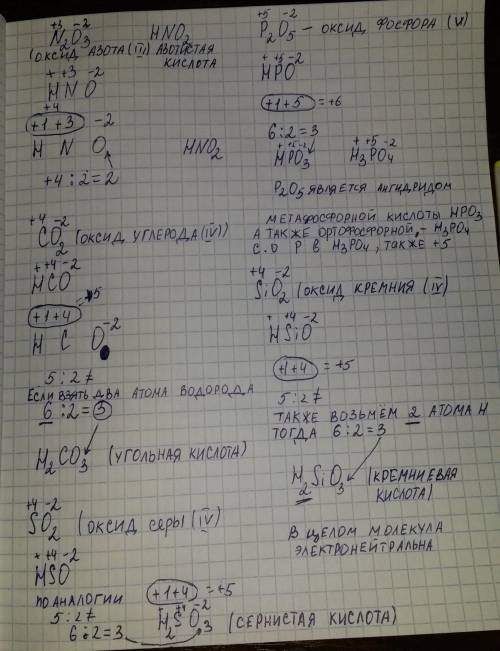 +3 -2
N2O3 HNO2
(ОКСИД АЗОТА (III) АЗОТИСТАЯ
КИСЛОТА
+ +3 -2
HNO
+4
+1+3 -2
H N O HNO2
+4:2=2
+4 -2
CO2 (ОКСИД УГЛЕРОДА (IV))
+ +4 -2
HCO
=+5
+1+4 -2
H C O
5:2≠
ЕСЛИ ВЗЯТЬ ДВА АТОМА ВОДОРОДА
6:2=3
H2CO3 (УГОЛЬНАЯ КИСЛОТА)
+4 -2
SO2 (ОКСИД СЕРЫ (IV)
+ +4 -2
HSO
ПО АНАЛОГИИ
5:2≠
6:2=3
+1+4 =+5
+ +4 -2
H2SO3 (СЕРНИСТАЯ КИСЛОТА)
+5 -2
P2O5 – ОКСИД ФОСФОРА (V)
+ +5 -2
HPO
+1+5 =+6
6:2=3
+ +5 -2 + +5 -2
HPO3 H3PO4
P2O5 ЯВЛЯЕТСЯ АНГИДРИДОМ
МЕТАФОСФОРНОЙ КИСЛОТЫ HPO3
А ТАКЖЕ ОРТОФОСФОРНОЙ, – H3PO4
С.О P В H3PO4, ТАКЖЕ +5
+4 -2
SiO2 (ОКСИД КРЕМНИЯ (IV)
+ +4 -2
HSiO
+1+4 =+5
5:2≠
ТАКЖЕ ВОЗЬМЁМ 2 АТОМА H
ТОГДА 6:2=3
H2SiO3 (КРЕМНИЕВАЯ
КИСЛОТА)
В ЦЕЛОМ МОЛЕКУЛА
ЭЛЕКТРОНЕЙТРАЛЬНА